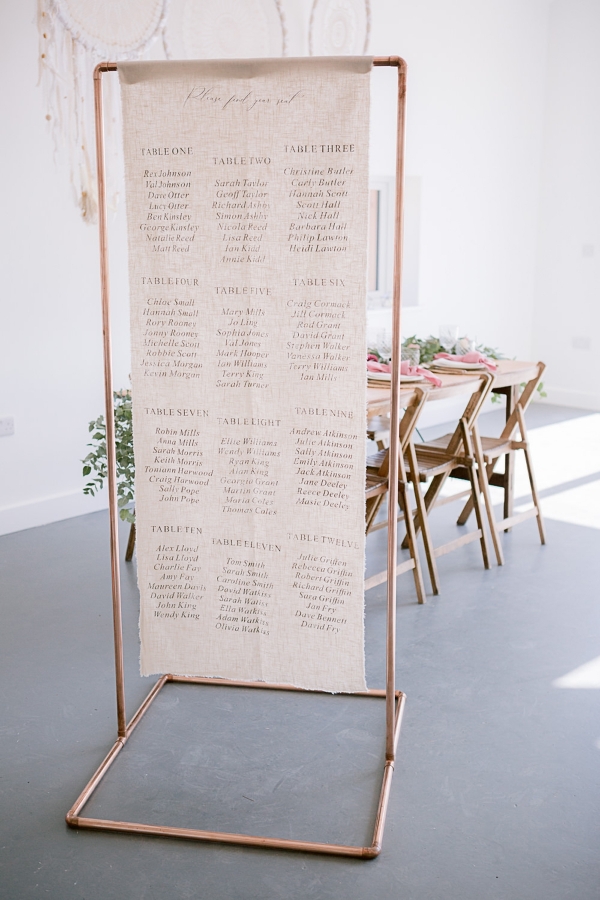 Please find your seat
TABLE ONE
Rex Johnson
Val Johnson
Dave Otter
Lucy Otter
Ben Kinsley
George Kinsley
Natalie Reed
Matt Reed
TABLE TWO
Sarah Taylor
Geoff Taylor
Richard Ashby
Simon Ashby
Nicola Reed
Lisa Reed
Ian Kidd
Annie Kidd
TABLE THREE
Christine Butler
Carly Butler
Hannah Scott
Scott Hall
Nick Hall
Barbara Hall
Philip Lawton
Heidi Lawton
TABLE FOUR
Chloe Small
Hannah Small
Rory Rooney
Jonny Rooney
Michelle Scott
Robbie Scott
Jessica Morgan
Kevin Morgan
TABLE FIVE
Mary Mills
Jo Ling
Sophia Jones
Val Jones
Mark Hooper
Ian Williams
Terry King
Sarah Turner
TABLE SIX
Craig Cormack
Jill Cormack
Rod Grant
David Grant
Stephen Walker
Vanessa Walker
Terry Williams
Ian Mills
TABLE SEVEN
Robin Mills
Anna Mills
Sarah Morris
Keith Morris
Toniann Harwood
Craig Harwood
Sally Pope
John Pope
TABLE EIGHT
Ellie Williams
Wendy Williams
Ryan King
Alan King
Georgie Grant
Martin Grant
Maria Coles
Thomas Coles
TABLE NINE
Andrew Atkinson
Julie Atkinson
Sally Atkinson
Emily Atkinson
Jack Atkinson
Jane Deeley
Reece Deeley
Masic Deeley
TABLE TEN
Alex Lloyd
Lisa Lloyd
Charlie Fay
Amy Fay
Maureen Davis
David Walker
John King
Wendy King
TABLE ELEVEN
Tom Smith
Sarah Smith
Caroline Smith
David Watkiss
Sarah Watkiss
Ella Watkiss
Adam Watkiss
Olivia Watkiss
TABLE TWELVE
Julie Griffin
Rebecca Griffin
Robert Griffin
Richard Griffin
Sara Griffin
Jan Fry
Dave Bennett
David Fry